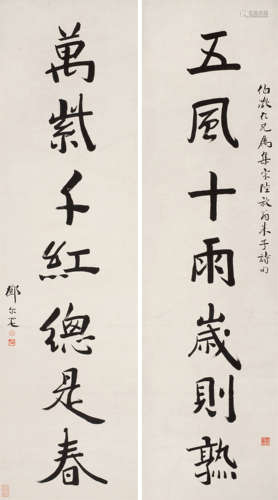 伯仁兄屬集宋陸放翁朱子詩句
五風十雨歳則熟
萬紫千紅總是春
鄧尔疋